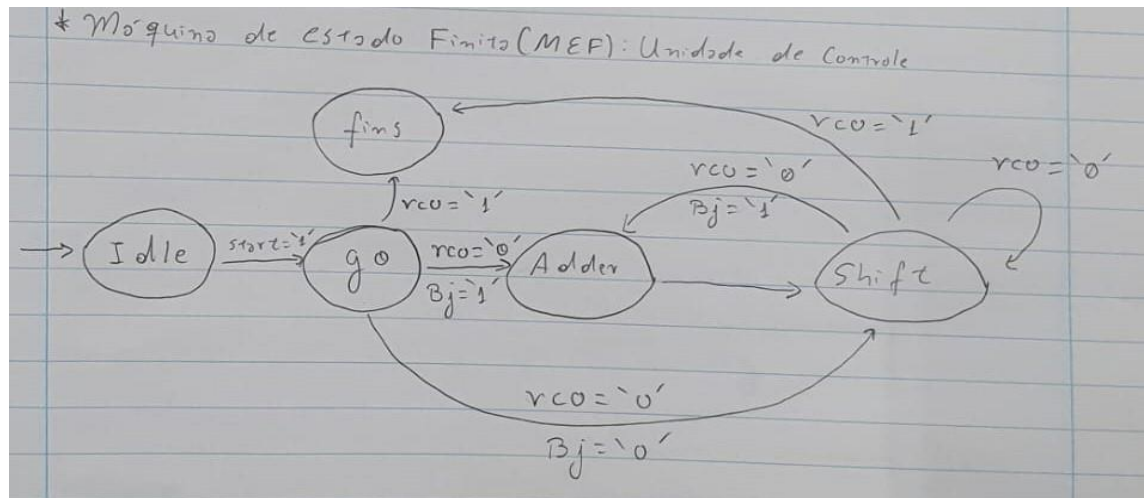 * Máquina de estado Finito (MEF): Unidade de Controle
fins
rco = '1'
rco = '0'
rco = '0'
Bj = '1'
rco = '1'
Idle
start = '1'
go
rco = '0'
Bj = '1'
Adder
Shift
rco = '0'
Bj = '0'